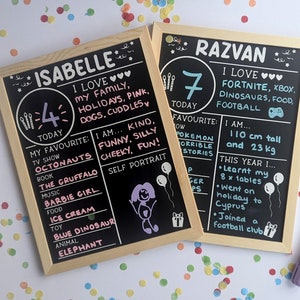 ISABELLE
4
TODAY
I LOVE
MY FAMILY,
HOLIDAYS, PINK,
DOGS, CUDDLES
MY FAVOURITE:
TV SHOW
OCTONAUTS
BOOK
THE GRUFFALO
MUSIC
BARBIE GIRL
FOOD
ICE CREAM
TOY
BLUE DINOSAUR
ANIMAL
ELEPHANT
I AM... KIND,
FUNNY, SILLY
CHEEKY, FUN!
SELF PORTRAIT
RAZVAN
7
TODAY
I LOVE
FORTNITE, XBOX
DINOSAURS, FOOD
FOOTBALL
FAVOURITE:
SHOW
POKEMON
HORRIBLE
STORIES
I AM...
110 cm tall
and 23 kg
THIS YEAR I...
- Learnt my
8 x tables
- Went on
holiday to
Cyprus
- Joined a
football club